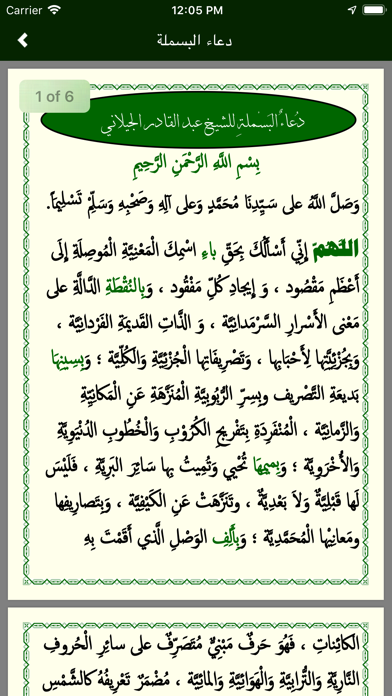 Carrier 12:05 PM
دعاء البسملة
1 of 6
دُعَاءُ البَسْمَلَةِ لِلشيخ عبد القادر الجيلاني
بِسْمِ اللَّهِ الرَّحْمَنِ الرَّحِيمِ
وَصَلَّ اللَّهُ على سَيِّدِنَا مُحَمَّدٍ وَعلى آلِهِ وَصَحْبِهِ وَسَلِّمْ تَسْلِيمًا.
اللهم إِنِّي أَسْأَلُكَ بِحَقِّ باءِ اسْمِكَ الْمَعْنِيَّةِ الْمُوصِلَةِ إِلَى
أَعْظَمِ مَقْصُود ، وَ إِيجادِ كُلِّ مَفْقُود ، وَبِالنُّقْطَةِ الدَّالَّةِ على
مَعْنى الأَسْرارِ السَّرْمَدانِيَّة ، وَ الذَّاتِ القَدِيمَةِ الفَرْدانِيَّة ،
وَبِجُزْئِيَّتِها لِأَحْبَابِها ، وَتَصْرِيفَاتِها الْجُزْئِيَّةِ وَالكُلِّيَّة ؛ وَبِسِينِهَا
بَدِيعَةِ التَّصْرِيف وبِسِرِّ الرُّبُوبِيَّةِ الْمُنَزَّهَةِ عَنِ الْمَكانِيَّةِ
وَالزَّمانِيَّة ، الْمُنْفَرِدَةِ بِتَفْرِيجِ الكُرُوْبِ وَالْخُطُوبِ الدُّنْيَوِيَّةِ
وَالأُخْرَوِيَّة ؛ وَبِمِيمِهَا تُحْيي وَتُمِيتُ بِها سَائِرَ البَرِيَّة ، فَلَيْسَ
لَها قَبْلِيَّةٌ وَلاَ بَعْدِيَّةٌ ، وَتَنَزَّهَتْ عَنِ الكَيْفِيَّة ، وَبِتَصارِيفِها
ومَعانِيْها الْمُحَمَّدِيَّة ؛ وَبِأَلِفِ الوَصْلِ الَّذي أَقَمْتَ بِهِ
الكائِناتِ ، فَهُوَ حَرفٌ مَبْنِيٌّ مُتَصَرِّفٌ على سائِرِ الْحُروفِ
النَّارِيَّةِ وَالتُّرابِيَّةِ وَالْهَوَائِيَّةِ وَالمائِيَّة ، مُضْمَرٌ تَعْرِيفُهُ كالشَّمْسِ